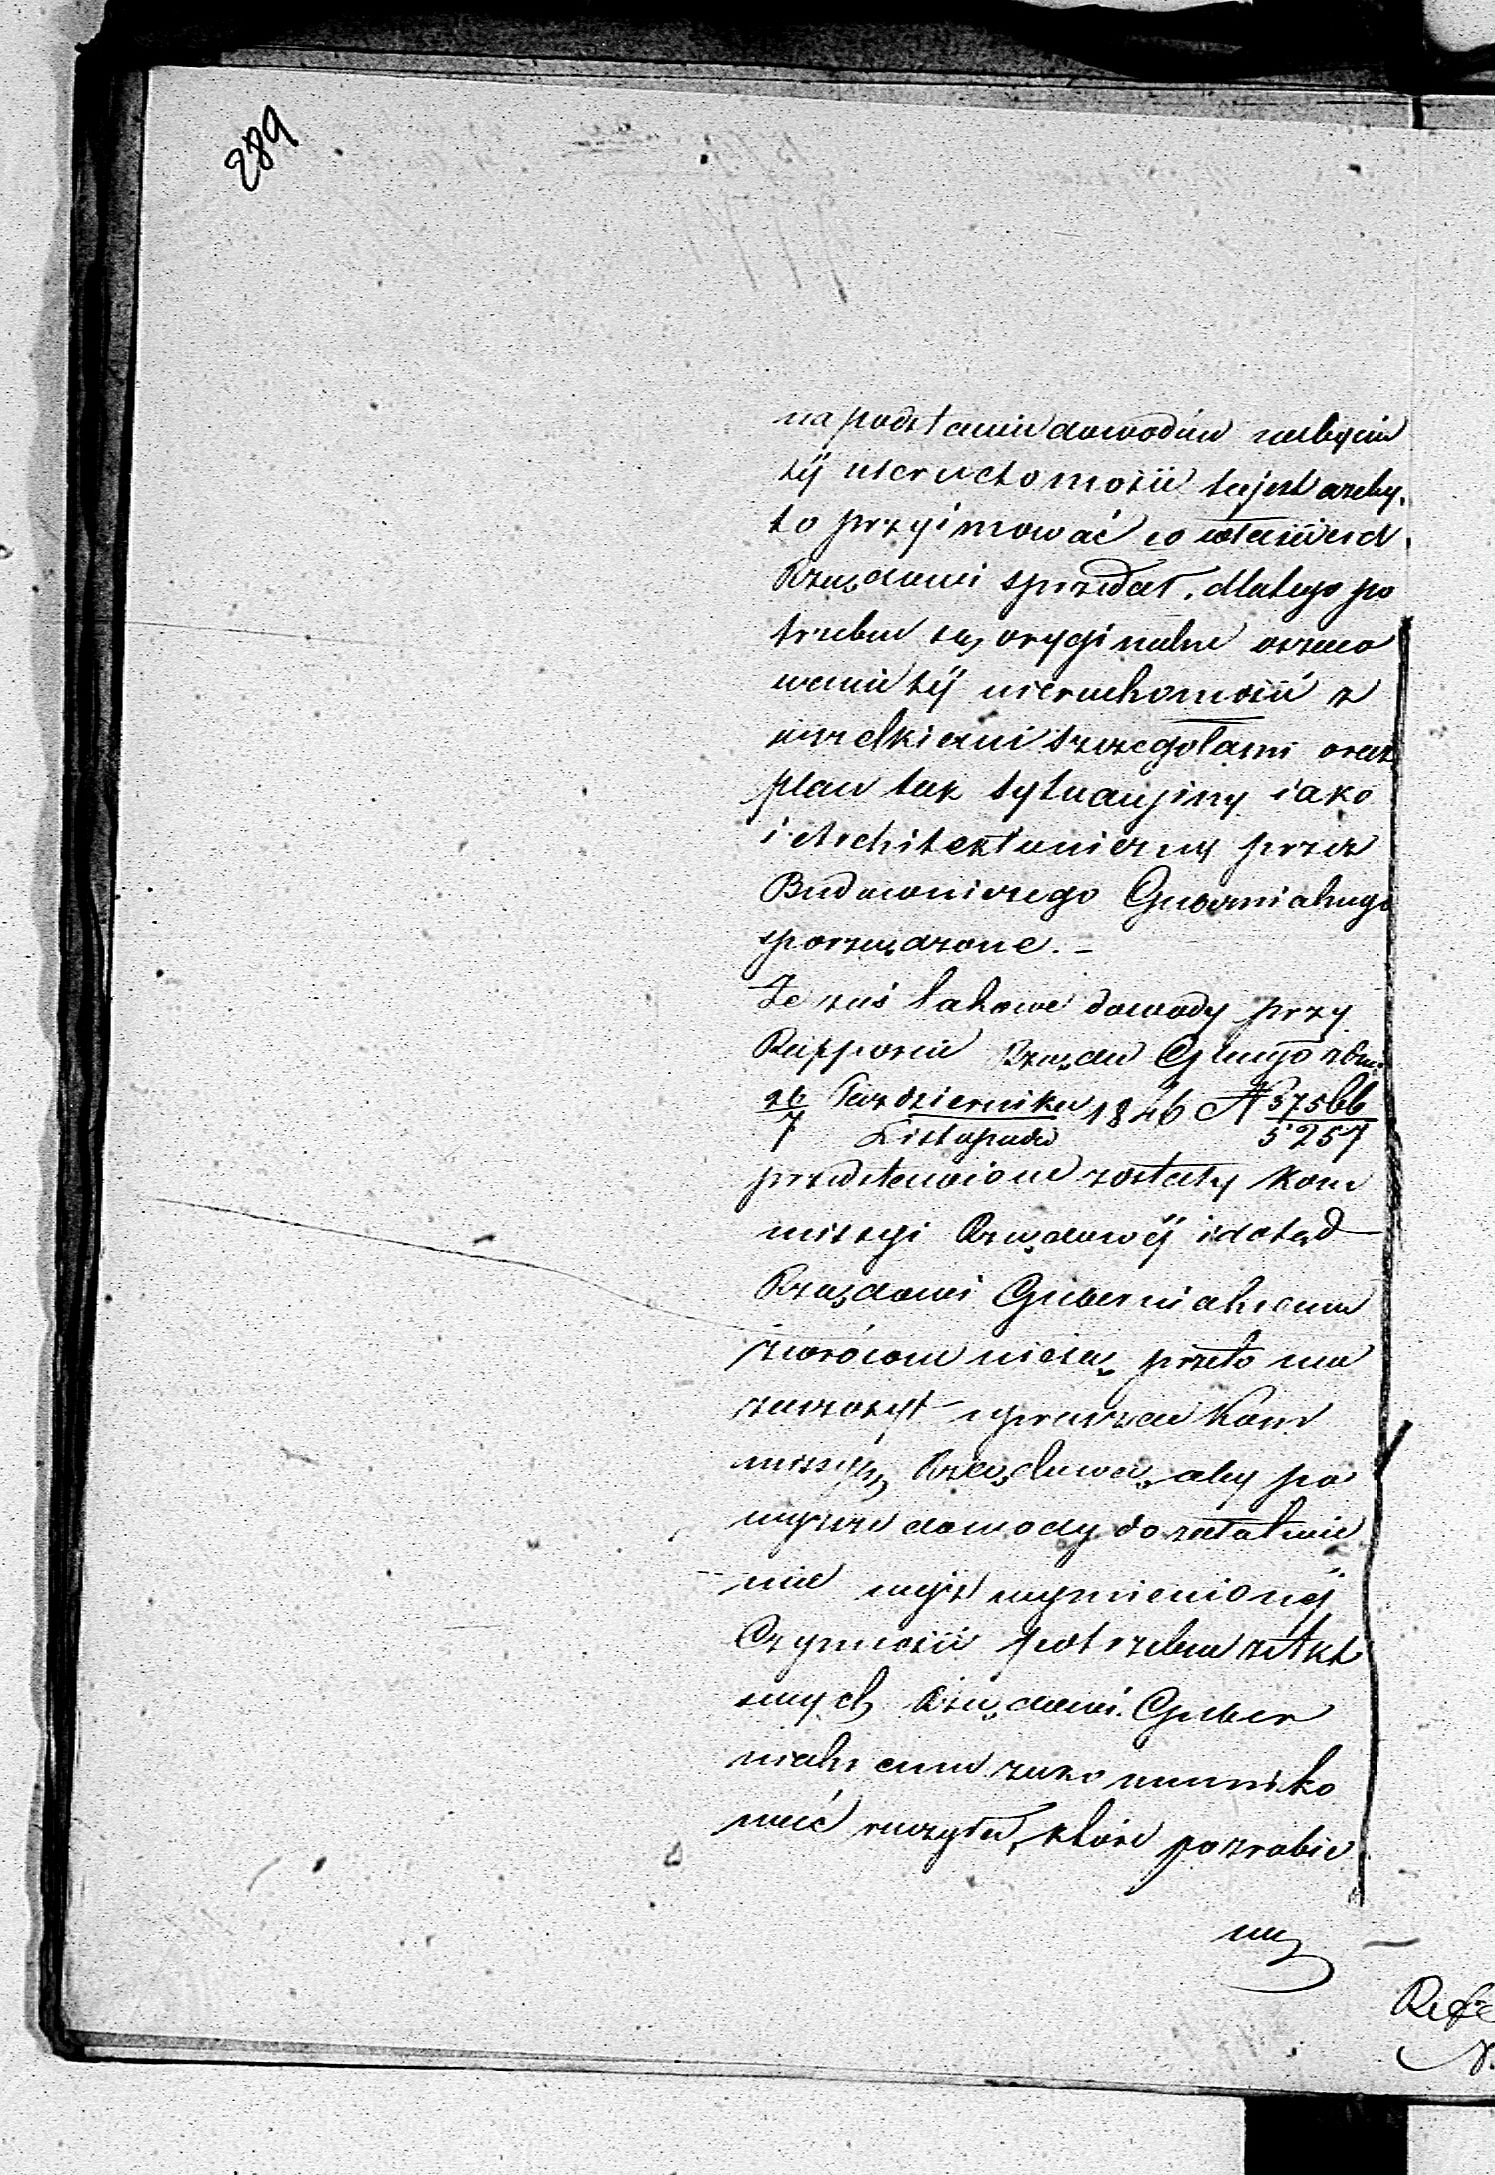 289
na podstawie dowodów nabycia
téj nieruchomości to jest azeby
to przyimować co właściciel
Rządowi sprzedał. dlatego po
trzebne są oryginalne oszaco
wania téj nieruchomości z
wszelkiemi szczegółami oraz
plan tak sytuacyjny iako
i Architektoniczny przez
Budowniczego Gubernialnego
sporządzone. –
Że zaś takowe dowody przy
Rapporcie Rządu Glnego z dnia
26/7 Października/Listopada 1846 N 57566/5257
przedstawione zostały Kom
missyi Rządowéj i dotąd
Rządowi Gubernialnemu
zwrócone nie są, przeto ma
zaszczyt upraszać Kom
missyą Rządową, aby po
wyższe dowody do załatwie
nia wyż wymienionéj
Czynności potrzebne z Akt
swych Rządowi Guber
nialnemu zakommuniko
wać raczyła, które po zrobie
niu
Refe
N.